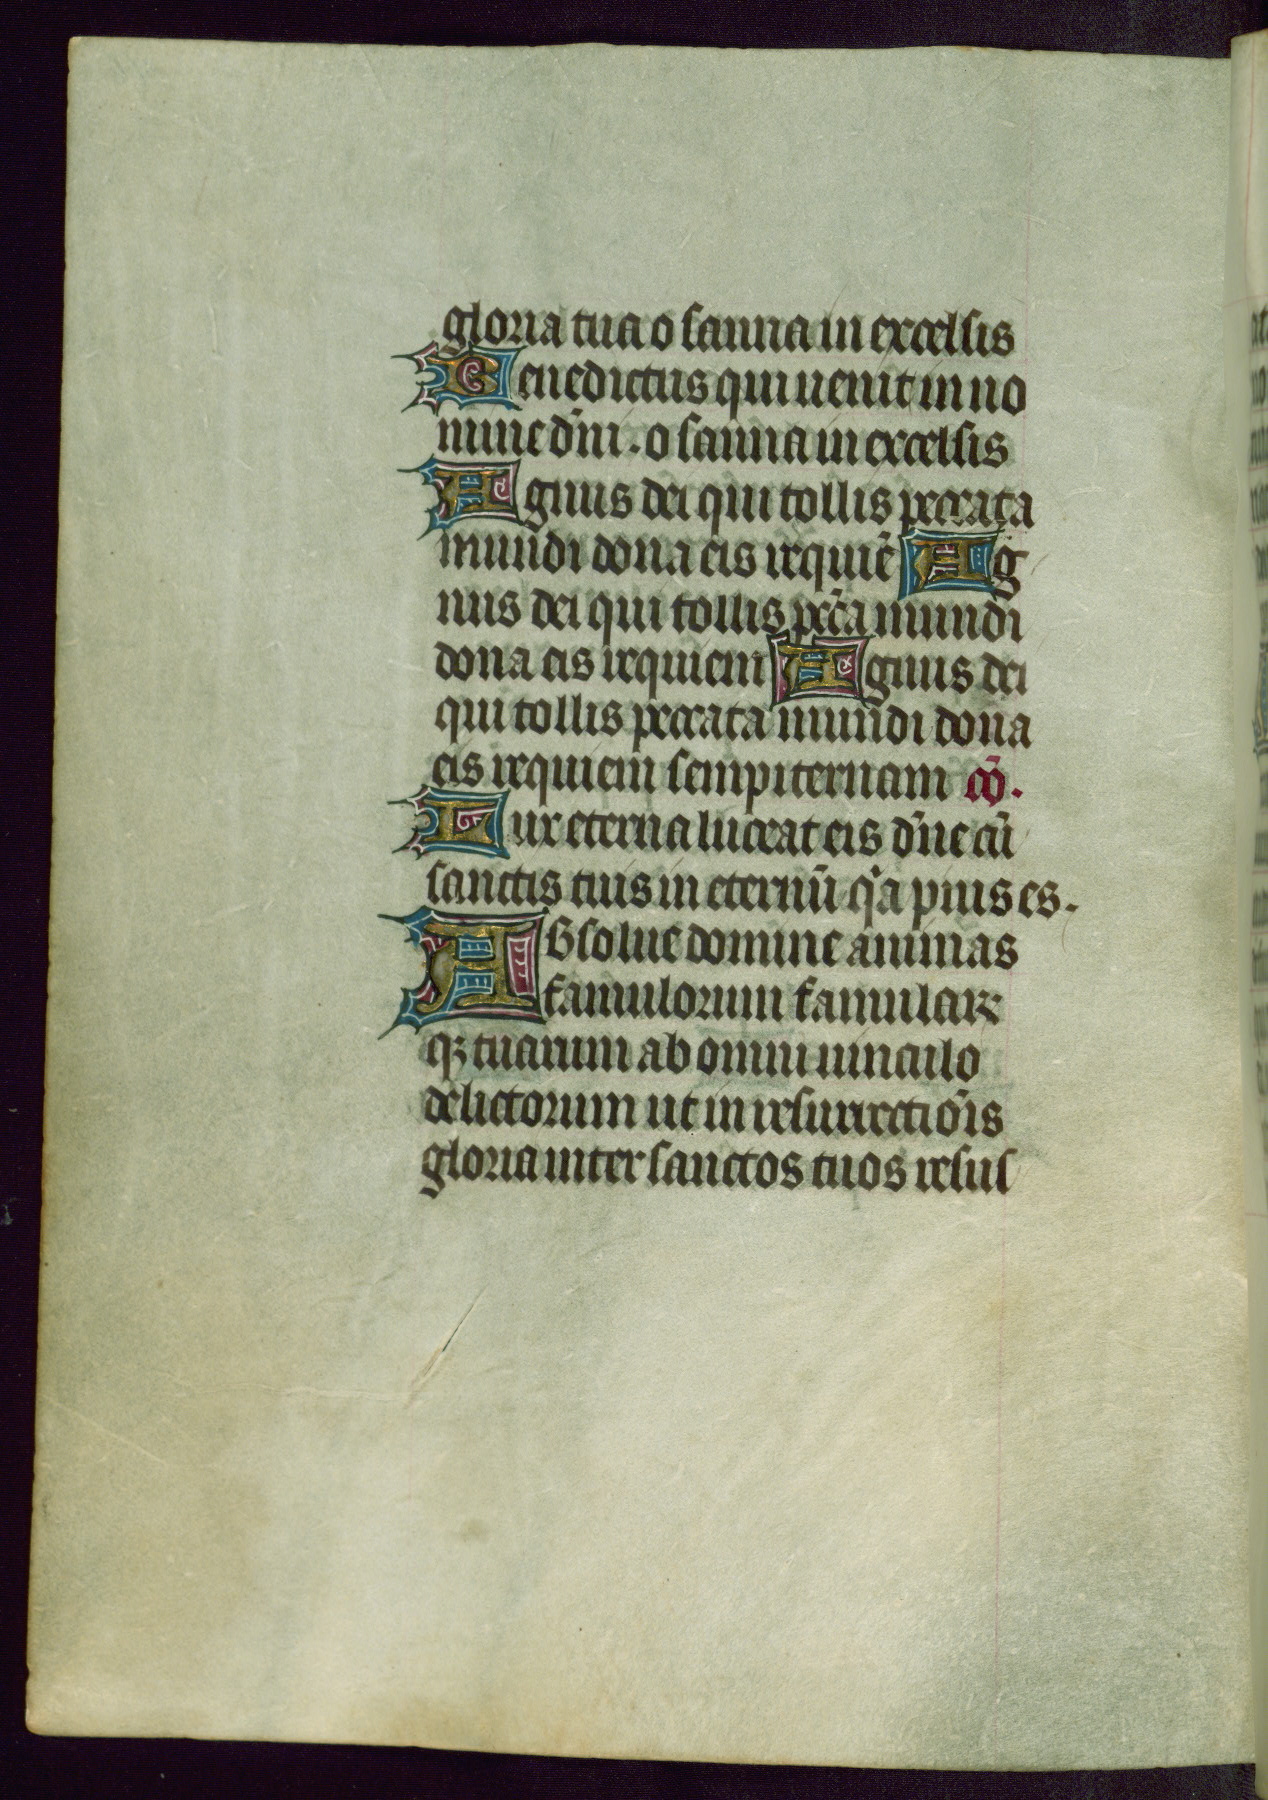 gloria tua o sanna in excelsis
Benedictus qui uenit in no
mine dn̄i . o sanna in excelsis
Agnus dei qui tollis peccata
mundi dona eis requiē Ag
nus dei qui tollis pcc̄a mundi
dona eis requiem Agnus dei
qui tollis peccata mundi dona
eis requiem sempiternam cō.
Lux eterna luceat eis dn̄e cū
sanctis tuis in eternū qͥa pius es.
ABsolue domine animas
famulorum famularꝝ
qꝫ tuarum ab omni uinculo
delictorum ut in resurrectiōis
gloria inter sanctos tuos resus